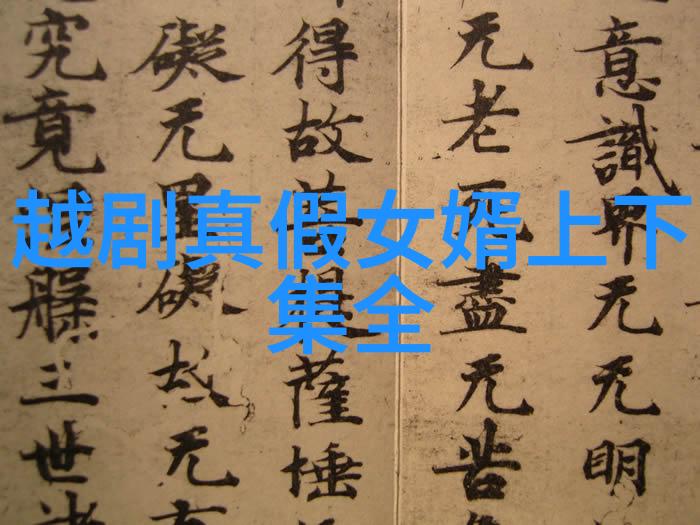 越剧真假女婿上下
集全
意識界无无明
无老死盡无苦
得故菩提薩埵
礙无罣礙故无有
究竟涅槃三世諸